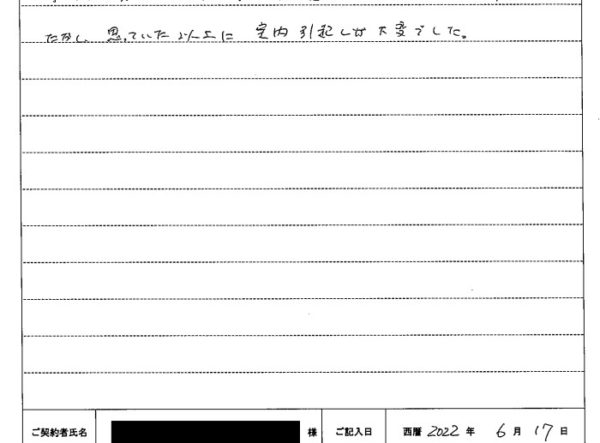 ただし 思っていた以上に 室内引越しが大変でした。
ご契約者氏名 様 ご記入日 西暦 2022 年 6 月 17 日